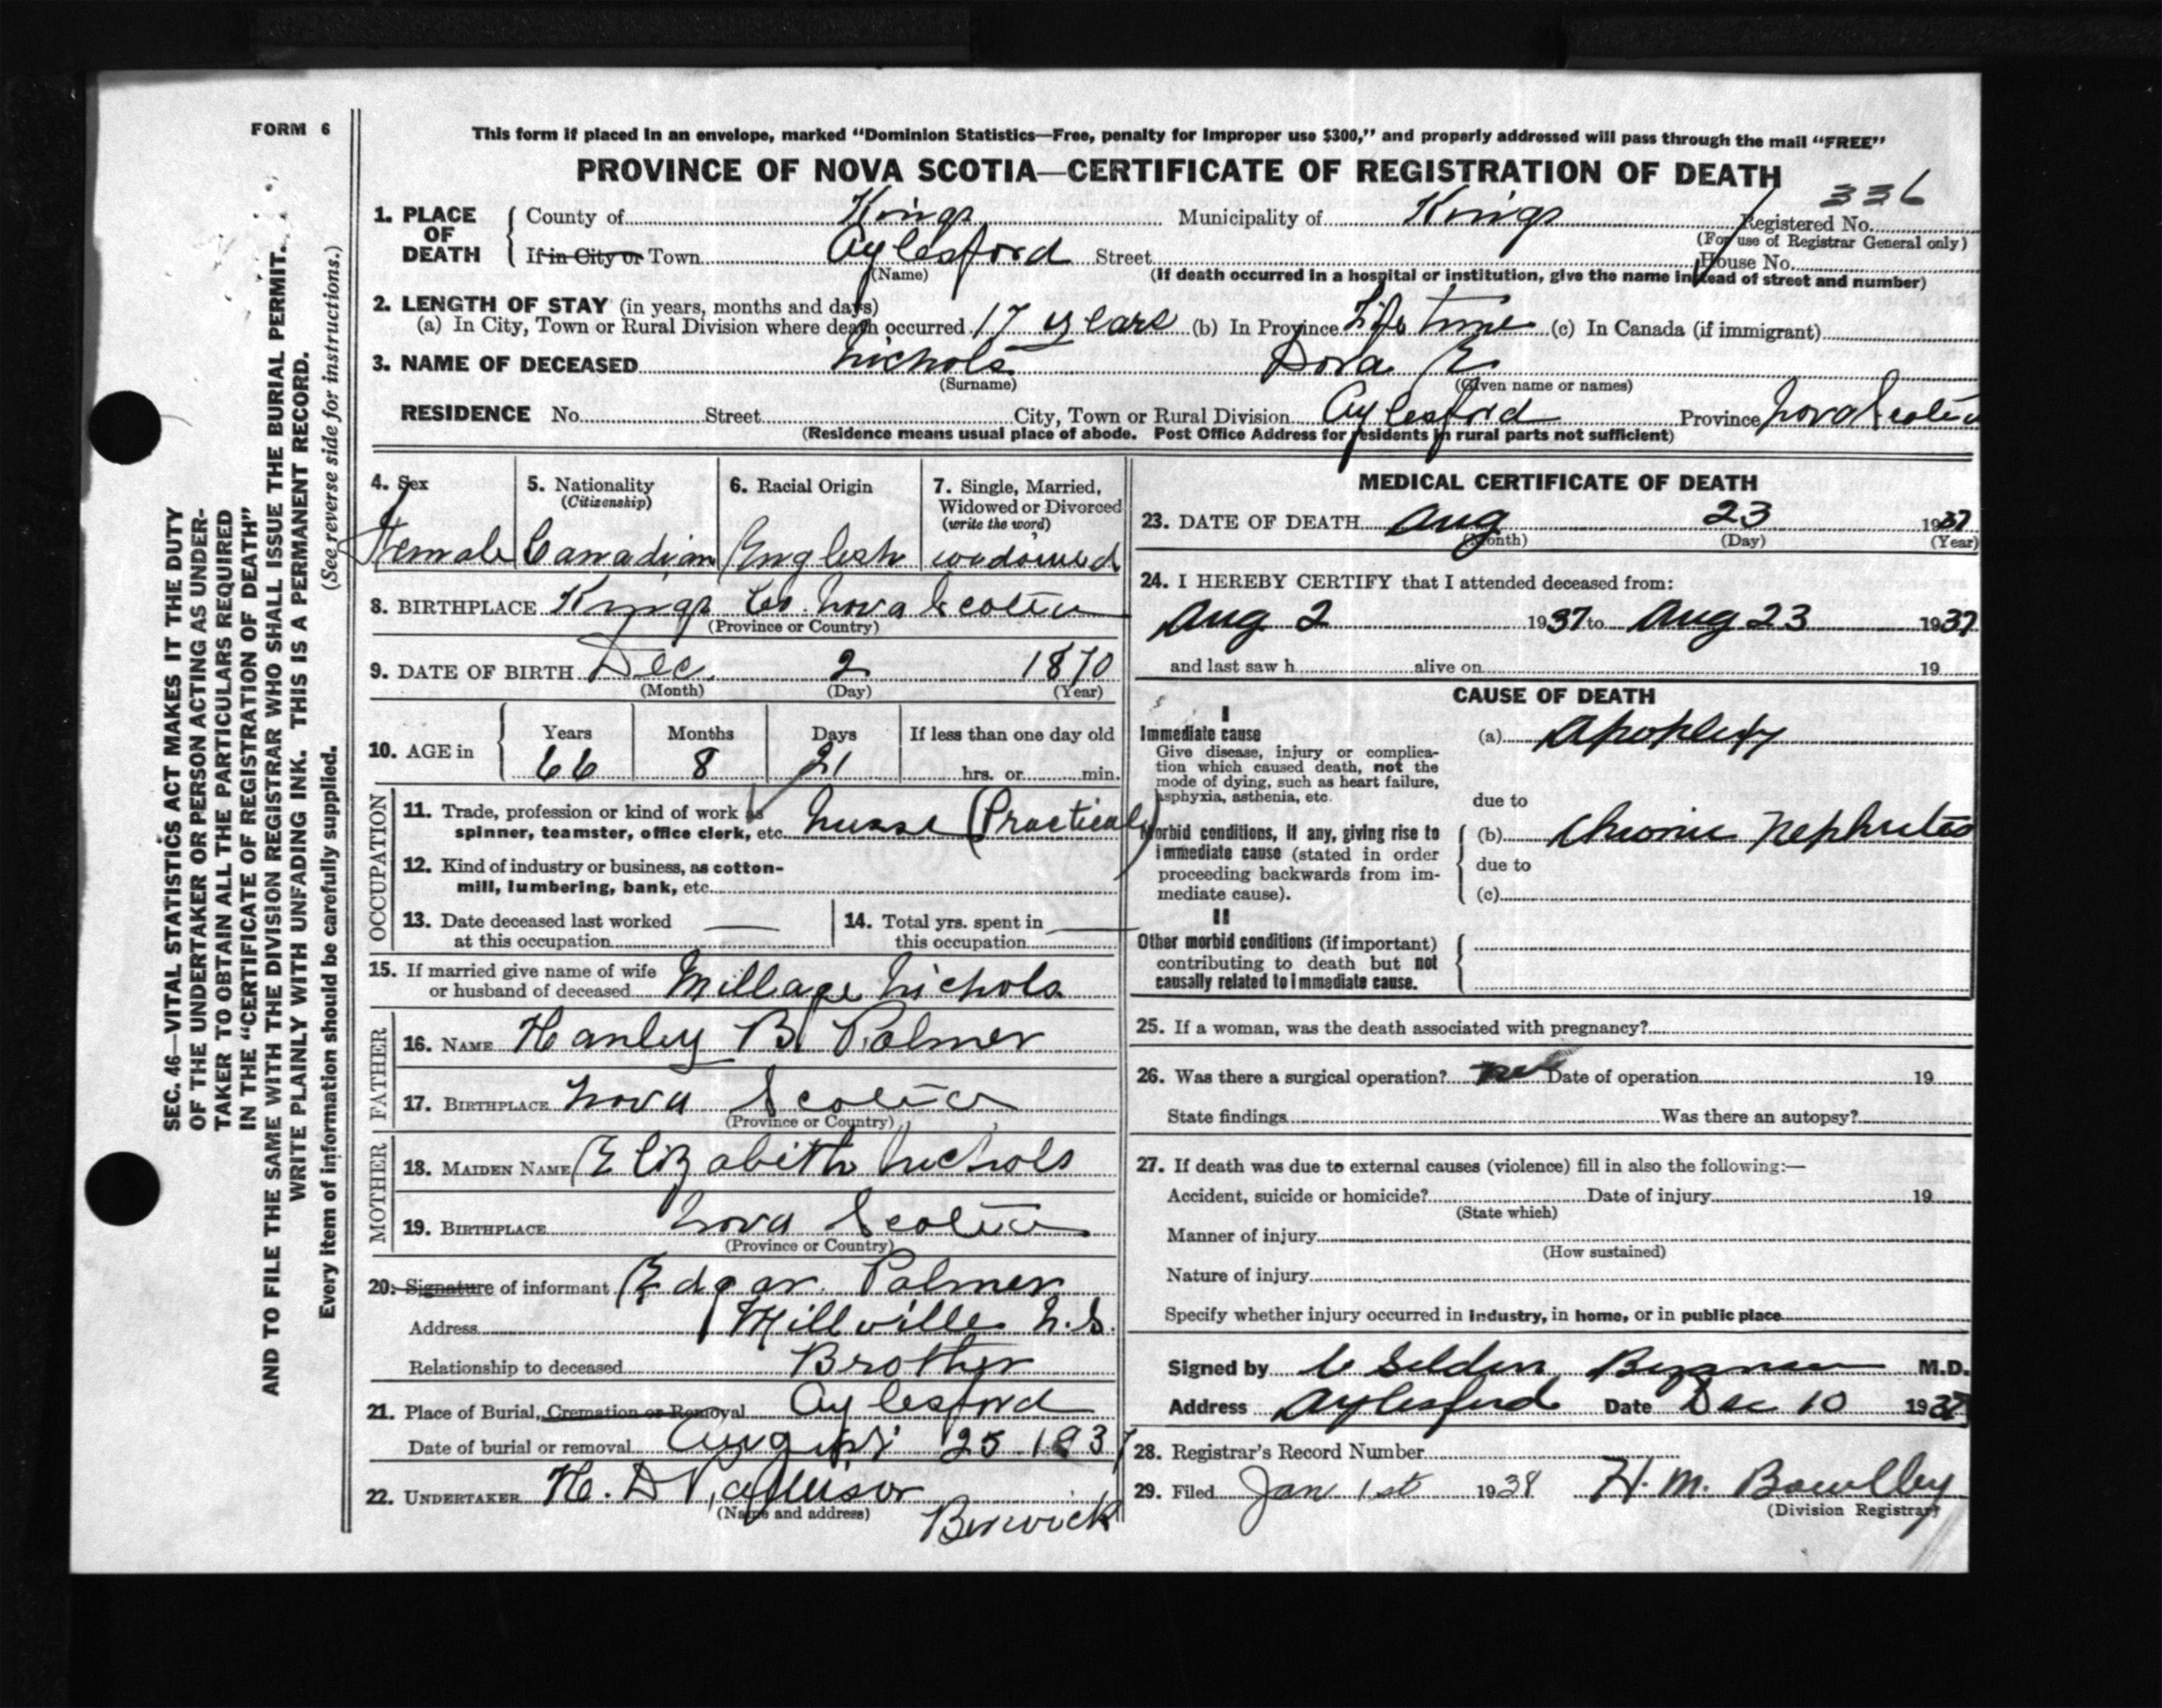 FORM 6
This form if placed in an envelope, marked “Dominion Statistics—Free, penalty for improper use $300,” and properly addressed will pass through the mail “FREE”
PROVINCE OF NOVA SCOTIA—CERTIFICATE OF REGISTRATION OF DEATH
336
1. PLACE OF DEATH County of Kings Municipality of Kings Registered No.
(For use of Registrar General only)
If in City or Town Aylesford Street House No.
(Name) (If death occurred in a hospital or institution, give the name instead of street and number)
2. LENGTH OF STAY (in years, months and days)
(a) In City, Town or Rural Division where death occurred 17 years (b) In Province Life time (c) In Canada (if immigrant)
3. NAME OF DECEASED Nichols Dora E
(Surname) (Given name or names)
RESIDENCE No. Street City, Town or Rural Division Aylesford Province Nova Scotia
(Residence means usual place of abode. Post Office Address for residents in rural parts not sufficient)
4. Sex
Female
5. Nationality
(Citizenship)
Canadian
6. Racial Origin
English
7. Single, Married,
Widowed or Divorced
(write the word)
widowed
8. BIRTHPLACE Kings Co. Nova Scotia
(Province or Country)
9. DATE OF BIRTH Dec. 2 1870
(Month) (Day) (Year)
10. AGE in Years Months Days If less than one day old
66 8 21 hrs. or min.
OCCUPATION
11. Trade, profession or kind of work as
spinner, teamster, office clerk, etc. Nurse (Practical)
12. Kind of industry or business, as cotton-
mill, lumbering, bank, etc.
13. Date deceased last worked
at this occupation —
14. Total yrs. spent in
this occupation —
15. If married give name of wife
or husband of deceased Millage Nichols
FATHER
16. NAME Hanley B. Palmer
17. BIRTHPLACE Nova Scotia
(Province or Country)
MOTHER
18. MAIDEN NAME Elizabeth Nichols
19. BIRTHPLACE Nova Scotia
(Province or Country)
20. Signature of informant Edgar Palmer
Address Millville N.S.
Relationship to deceased Brother
21. Place of Burial, Cremation or Removal Aylesford
Date of burial or removal August 25 1937
22. UNDERTAKER H. D.
(Name and address) Berwick
MEDICAL CERTIFICATE OF DEATH
23. DATE OF DEATH Aug 23 1937
(Month) (Day) (Year)
24. I HEREBY CERTIFY that I attended deceased from:
Aug 2 1937 to Aug 23 1937
and last saw h alive on 19
CAUSE OF DEATH
I
Immediate cause
Give disease, injury or complica-
tion which caused death, not the
mode of dying, such as heart failure,
asphyxia, asthenia, etc.
(a) Apoplexy
due to
Morbid conditions, if any, giving rise to
immediate cause (stated in order
proceeding backwards from im-
mediate cause).
(b) Chronic Nephritis
due to
(c)
II
Other morbid conditions (if important)
contributing to death but not
causally related to immediate cause.
25. If a woman, was the death associated with pregnancy?
26. Was there a surgical operation? no Date of operation 19
State findings Was there an autopsy?
27. If death was due to external causes (violence) fill in also the following:—
Accident, suicide or homicide? Date of injury 19
(State which)
Manner of injury
(How sustained)
Nature of injury
Specify whether injury occurred in industry, in home, or in public place
Signed by M.D.
Address Aylesford Date Dec 10 1937
28. Registrar's Record Number
29. Filed Jan 1st 1938 H. M.
(Division Registrar)
SEC. 46—VITAL STATISTICS ACT MAKES IT THE DUTY
OF THE UNDERTAKER OR PERSON ACTING AS UNDER-
TAKER TO OBTAIN ALL THE PARTICULARS REQUIRED
IN THE “CERTIFICATE OF REGISTRATION OF DEATH”
AND TO FILE THE SAME WITH THE DIVISION REGISTRAR WHO SHALL ISSUE THE BURIAL PERMIT.
WRITE PLAINLY WITH UNFADING INK. THIS IS A PERMANENT RECORD.
Every item of information should be carefully supplied. (See reverse side for instructions.)